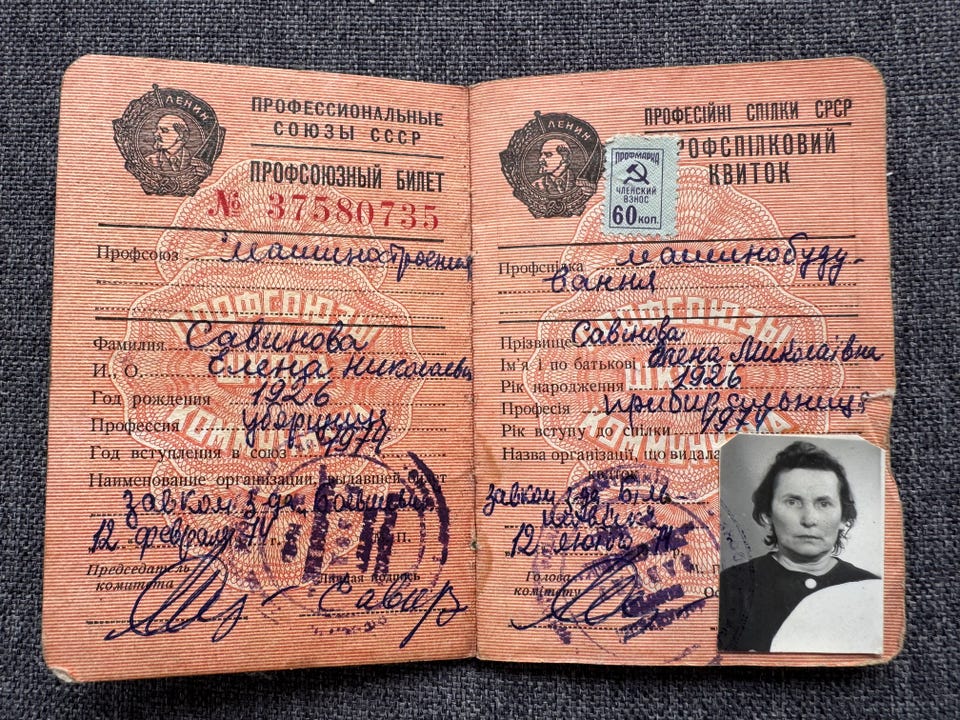 ЛЕНИН
ПРОФЕССИОНАЛЬНЫЕ
СОЮЗЫ СССР
ПРОФСОЮЗНЫЙ БИЛЕТ
№ 37580735
Профсоюз машиностроения
Фамилия Савинова
И., О. Елена Николаевна
Год рождения 1926
Профессия уборщица
Год вступления в союз 1974
Наименование организации, выдавшей билет
завком з-да Большевик
12 февраля 74 г.
М.П.
Председатель
комитета
Личная подпись
ПРОФСОЮЗЫ
ШКОЛА
КОММУНИЗМА
ЛЕНИН
ПРОФЕСІЙНІ СПІЛКИ СРСР
РОФСПІЛКОВИЙ
КВИТОК
ПРОФМАРКА
ЧЛЕНСКИЙ
ВЗНОС
60 коп.
Профспілка машинобуду-
вання
Прізвище Савінова
Ім'я і по батькові Елена Миколаївна
Рік народження 1926
Професія прибиральниця
Рік вступу до спілки 1974
Назва організації, що видала
квиток
завком з-да Біль-
12 лютого 74 р.
Голова
комітету
ПРОФСОЮЗЫ
ШКОЛА
КОММУНИЗМА